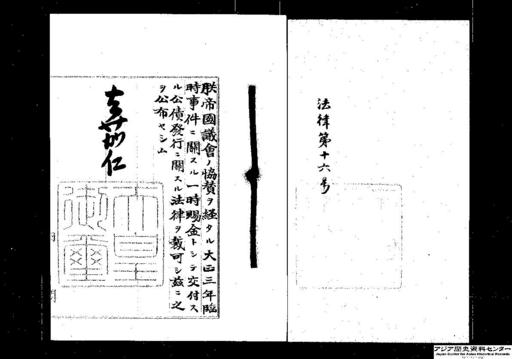 法律第十六号
朕帝國議會ノ協賛ヲ經タル大正三年臨
時事件ニ關スル一時賜金トシテ交付ス
ル公債發行ニ關スル法律ヲ裁可シ茲ニ之
ヲ公布セシム
嘉仁
天皇
御璽
アジア歴史資料センター
Japan Center for Asian Historical Records